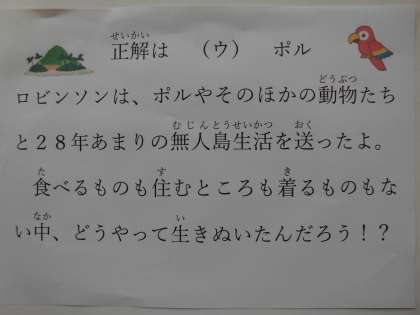 正解は　（ウ）　ポル
ロビンソンは、ポルやそのほかの動物たち
と２８年あまりの無人島生活を送ったよ。
食べるものも住むところも着るものもな
い中、どうやって生きぬいたんだろう！？